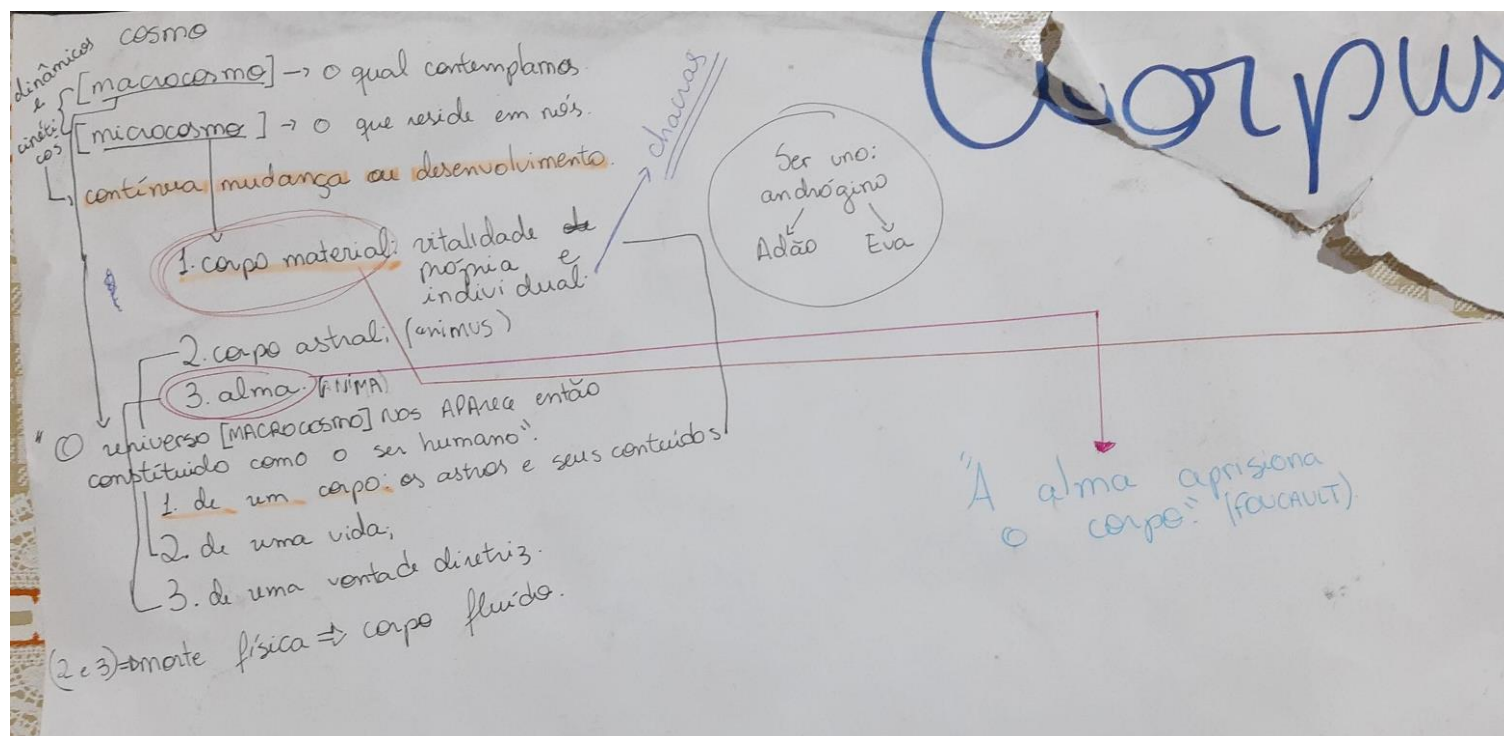 cosmo
dinâmicos
e
cinéti
cos
[macrocosmo] → o qual contemplamos.
[microcosmo] → o que reside em nós.
↳ contínua mudança ou desenvolvimento.
1. corpo material: vitalidade de
própria e
individual.
chacras
2. corpo astral: (animus)
3. alma. (ANIMA)
"O universo [MACROCOSMO] nos APArece então
constituído como o ser humano":
1. de um corpo: os astros e seus conteúdos.
2. de uma vida;
3. de uma vontade diretriz.
(2 e 3) ⇒ morte física ⇒ corpo fluído.
Ser uno:
andrógino
Adão Eva
Corpus
"A alma aprisiona
o corpo". (FOUCAULT).